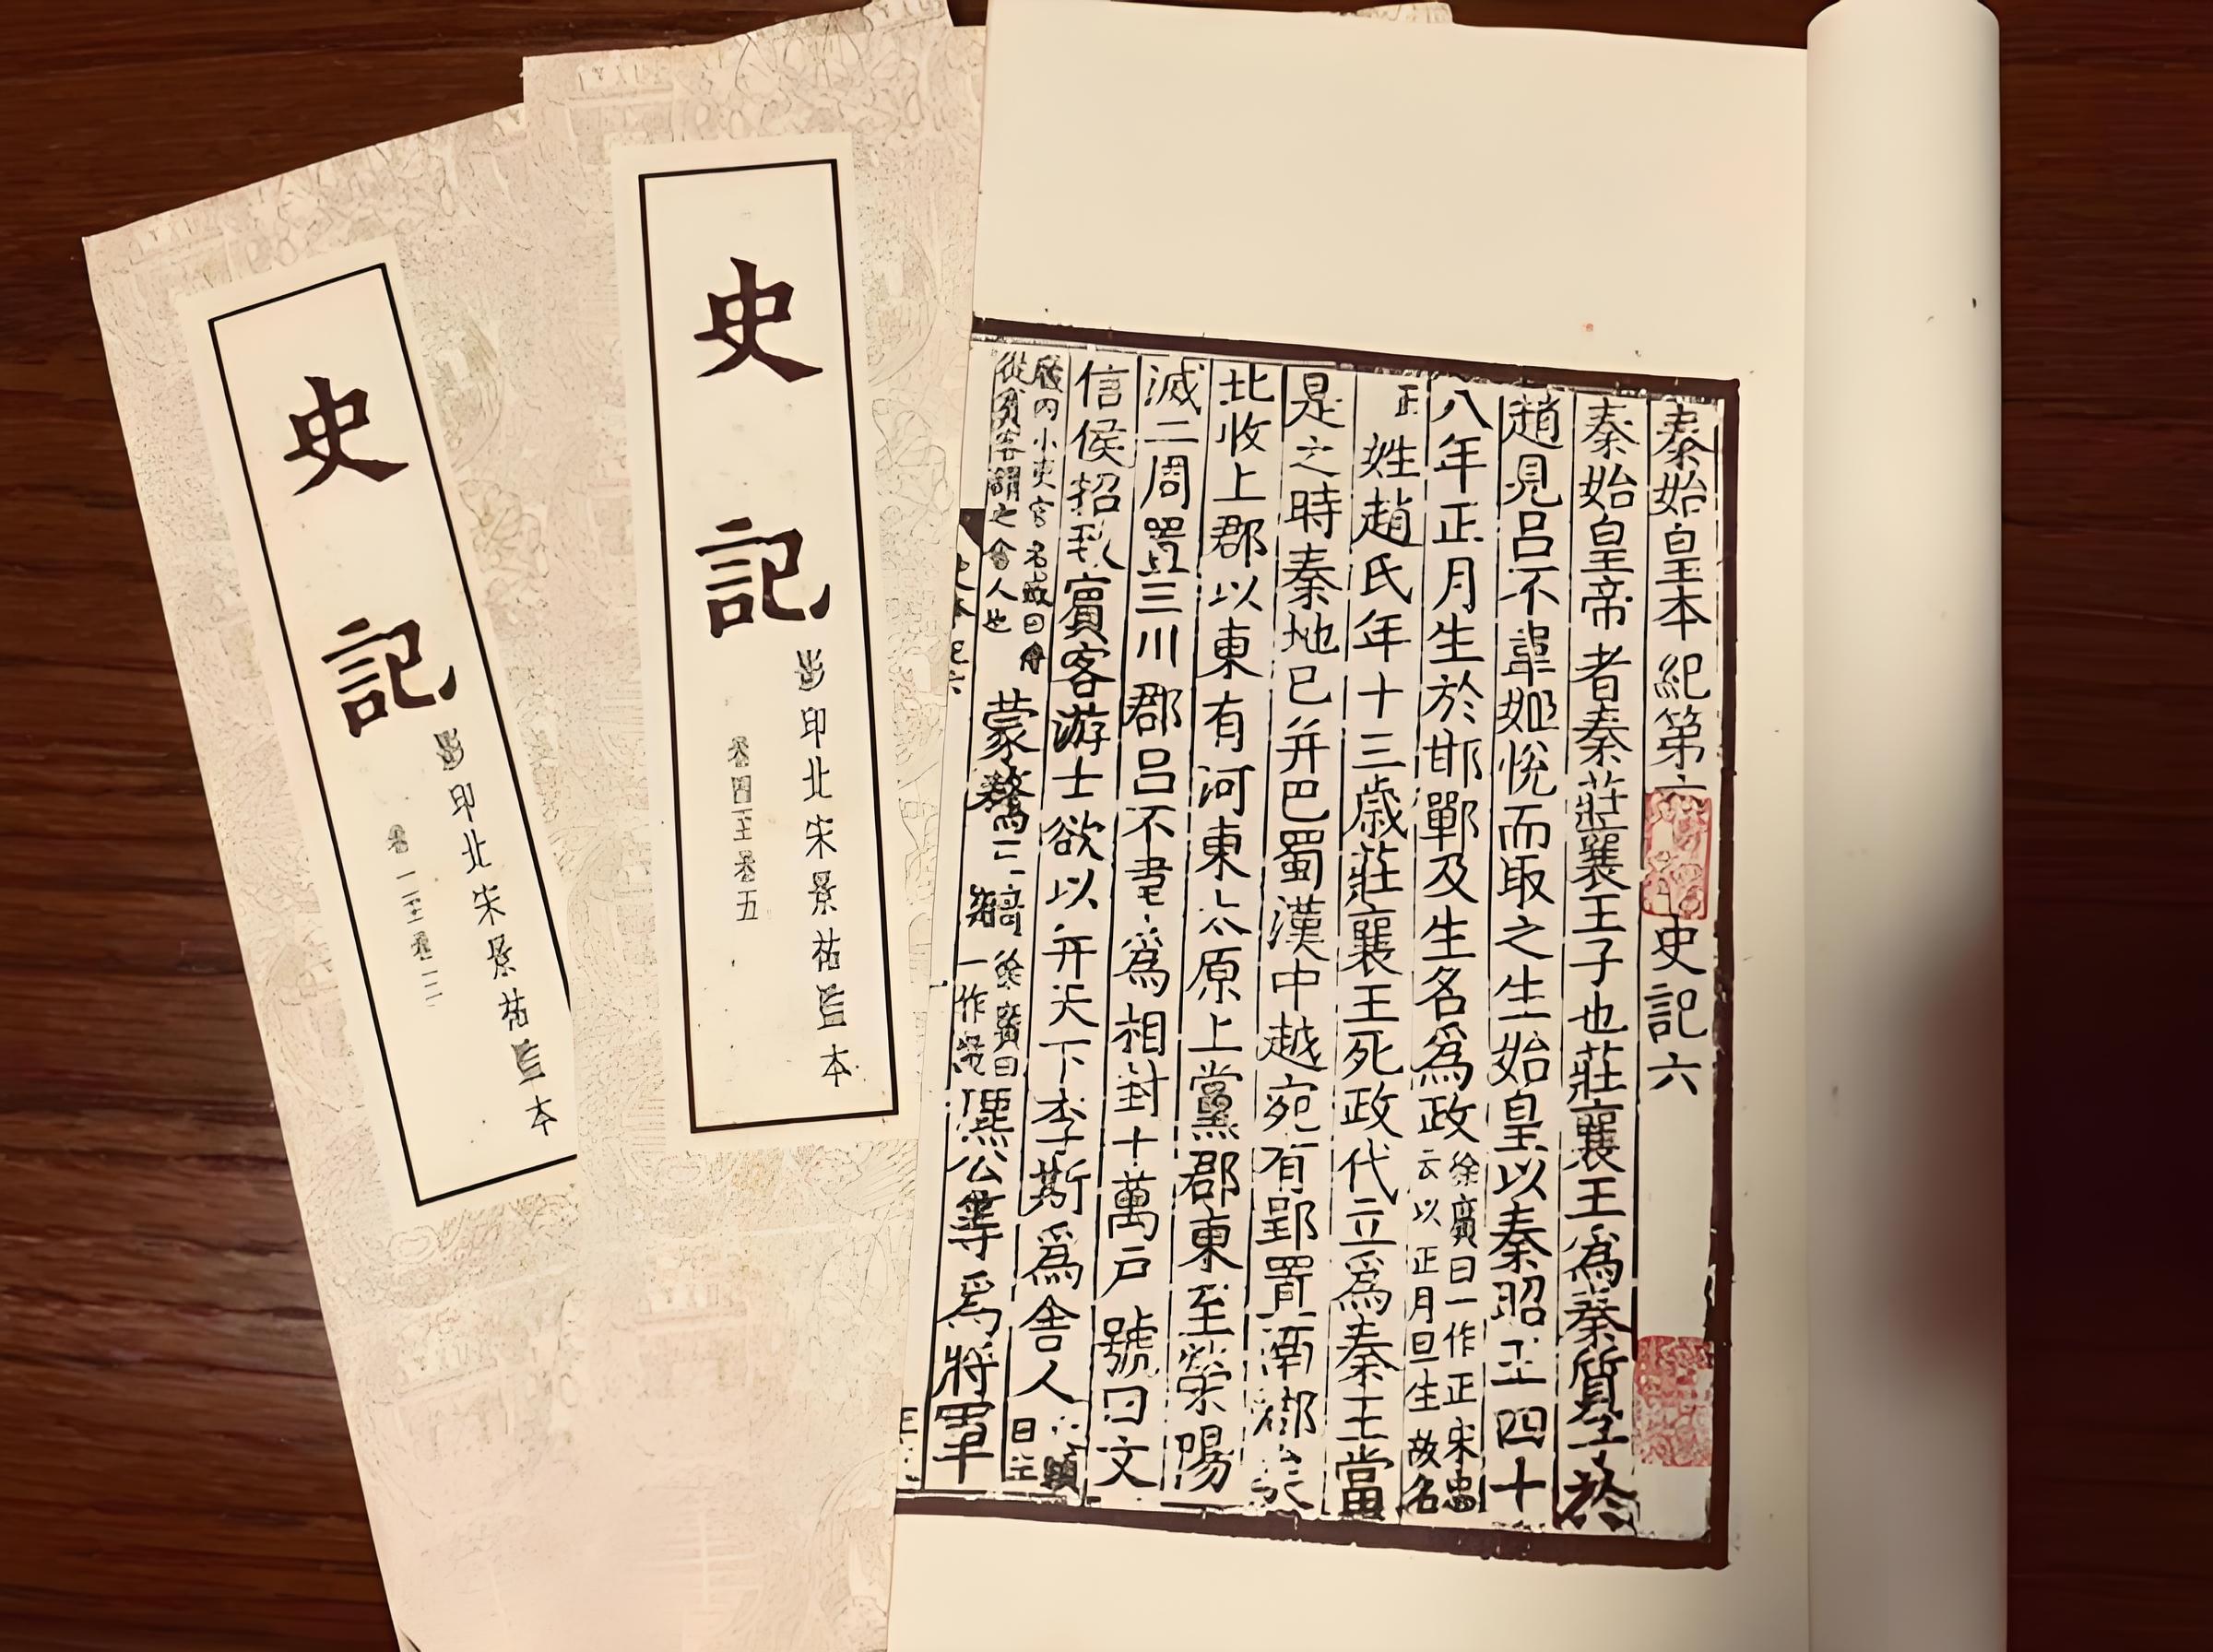 史記
影印北宋景祐監本
卷一至卷二
史記
影印北宋景祐監本
卷四至卷五
秦始皇本紀第六 史記六
秦始皇帝者秦莊襄王子也莊襄王為秦質子於
趙見呂不韋姬悅而取之生始皇以秦昭王四十
八年正月生於邯鄲及生名為政 徐廣曰一作正宋忠云以正月旦生故名
正 姓趙氏年十三歲莊襄王死政代立為秦王當
是之時秦地已并巴蜀漢中越宛有郢置南郡矣
北收上郡以東有河東太原上黨郡東至滎陽
滅二周置三川郡呂不韋為相封十萬戶號曰文
信侯招致賓客游士欲以并天下李斯為舍人
廝內小吏官名或曰侍從賓客謂之舍人也 蒙驁王齮 徐廣曰一作齕 麃公等為將軍